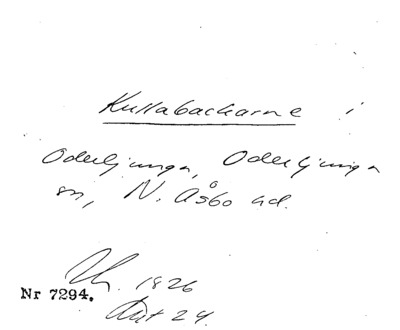 Kullabackarne i
Oderljunga, Oderljunga
sn, N. Åsbo hd.
1826
Nr 7294.
Akt 24.